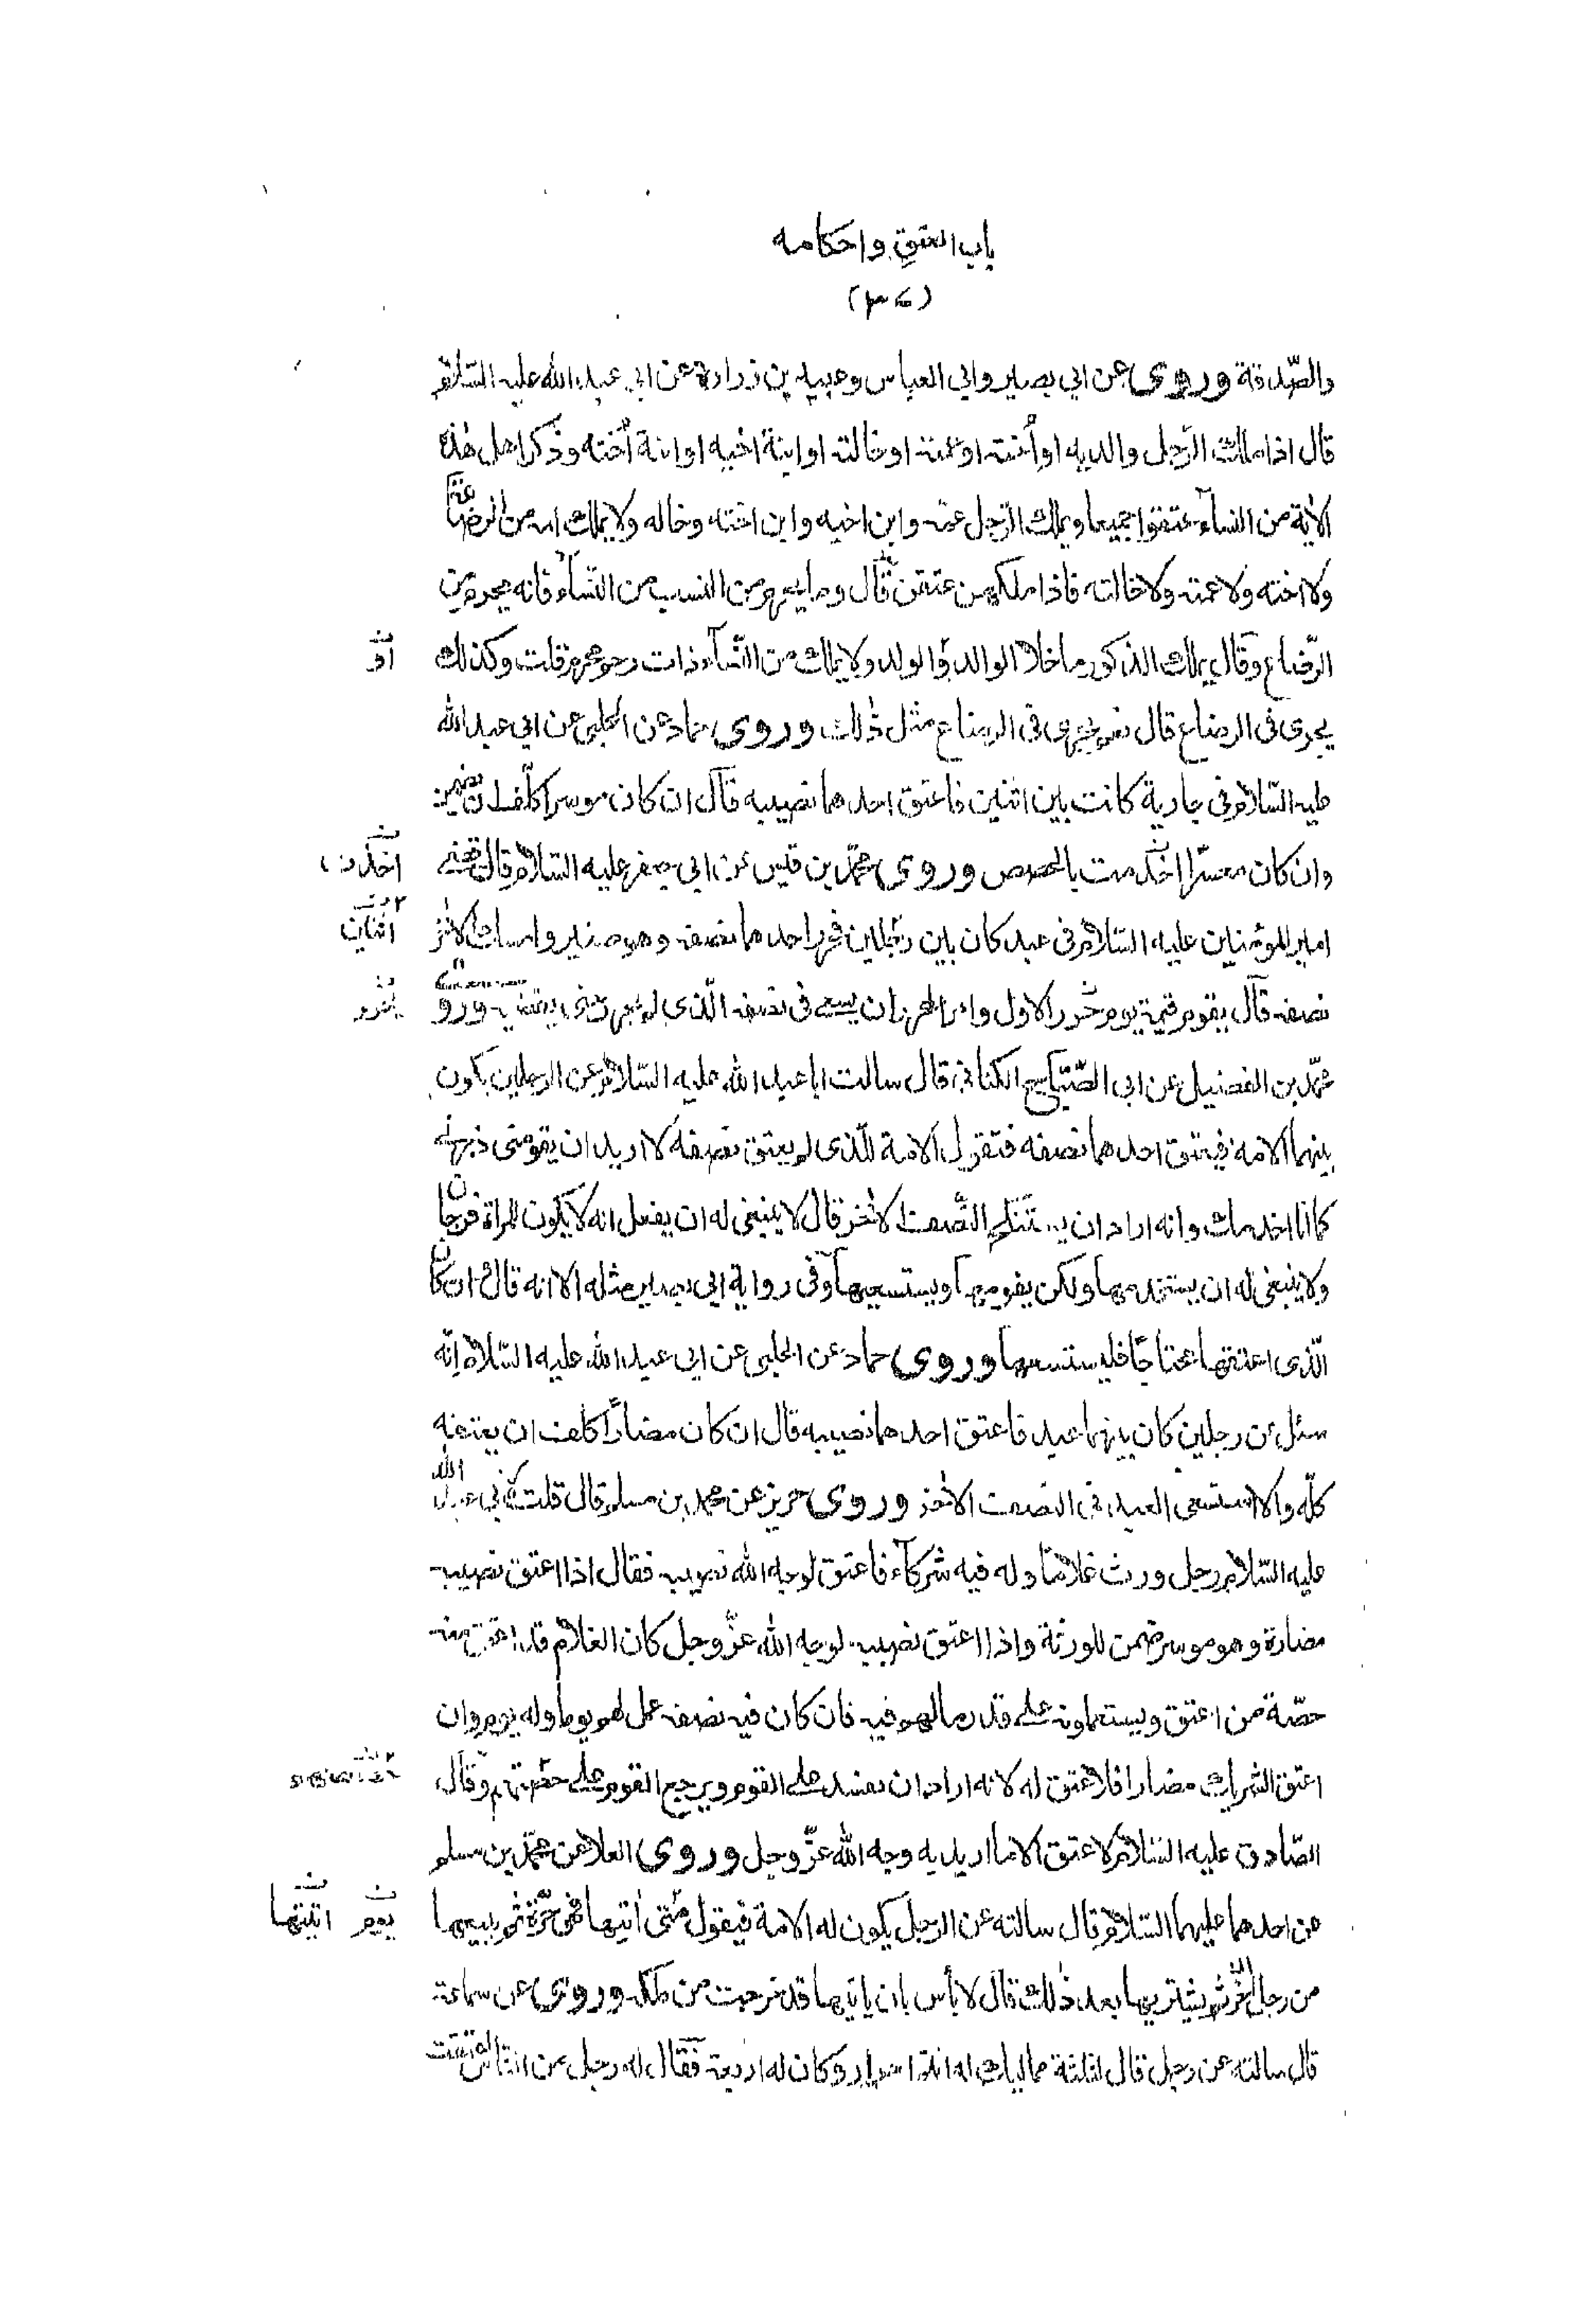 باب العتق واحكامه
(٣٤)
والصّدقة وروى عن ابي بصير وابي العباس وعبيد بن زرارة عن ابي عبد الله عليه السّلام
قال اذا ملك الرّجل والديه او أخته او عمته او خالته او ابنة اخيه او ابنة أخته وذكر اهل هذه
الاٰية من النسآء عتقوا جميعا ويملك الرّجل عمه وابن اخيه وابن اخته وخاله ولا يملك امه من الرضاعة
ولا اخته ولا عمته ولا خالته فاذا ملكهن عتقن قال وما يحرم من النسب من النّسآء فانه يحرم من
الرّضاع وقال يملك الذكور ما خلا الوالد والولد ولا يملك من النّسآء ذات رحم محرم قلت وكذلك
يجرى فى الرضاع قال نعم يجرى فى الرضاع مثل ذٰلك وروى حماد عن الحلبى عن ابي عبد الله
عليه السّلام فى جارية كانت بين اثنين فاعتق احدهما نصيبه قال ان كان موسرا كلّف ان يضمن
وان كان معسرًا اخدمت بالحصص وروى محمّد بن قيس عن ابي جعفر عليه السّلام قال قضى
امير المؤمنين عليه السّلام فى عبد كان بين رجلين فحرر احدهما نصفه وهو صغير وامسك الاٰخر
نصفه قال يقوم قيمة يوم حرر الاول وامر المحرر ان يسعى فى نصفه الّذى لم يحرر حتى يقضيه وروى
محمّد بن الفضيل عن ابي الصّبّاح الكنانى قال سالت ابا عبد الله عليه السّلام عن الرجلين يكون
بينهما الامة فيعتق احدهما نصفه فتقول الامة للّذى لم يعتق نصفه لا اريد ان يقومنى ذرنى
كما انا اخدمك وانه اراد ان يستنكح النّصف الاٰخر قال لا ينبغى له ان يفعل انه لا يكون للمراة فرجان
ولا ينبغى له ان يستخدمها ولكن يقومها ويستسعيها وفى رواية ابي بصير مثله الا انه قال ان كان
الّذى اعتقها محتاجًا فليستسعها وروى حماد عن الحلبى عن ابي عبد الله عليه السّلام انّه
سئل عن رجلين كان بينهما عبد فاعتق احدهما نصيبه قال ان كان مضارًّا كلف ان يعتقه
كلّه والا استسعى العبد فى النصف الاٰخر وروى حريز عن محمد بن مسلم قال قلت لابي عبد الله
عليه السّلام رجل ورث غلامًا وله فيه شركآء فاعتق لوجه الله نصيبه فقال اذا اعتق نصيبه
مضارة وهو موسر ضمن للورثة واذا اعتق نصيبه لوجه الله عزّ وجل كان الغلام قد اعتق منه
حصّة من اعتق ويستعملونه على قدر ما لهم فيه فان كان فيه نصفه عمل لهم يوما وله يوم وان
اعتق الشريك مضارا فلا عتق له لانه اراد ان يفسد على القوم ويرجع القوم على حصّتهم وقال
الصّادق عليه السّلام لا عتق الا ما اريد به وجه الله عزّ وجل وروى العلا عن محمّد بن مسلم
عن احدهما عليهما السّلام قال سالته عن الرجل يكون له الامة فيقول متى اٰتيها فهى حرّة ثم يبيعها
من رجل اٰخر ثم يشتريها بعد ذٰلك قال لا بأس بان ياتيها قد خرجت من ملكه وروى عن سماعة
قال سالته عن رجل قال لثلثة مماليك له انتم احرار وكان له اربعة فقال له رجل من النّاس اعتقت
او
اثنين
يوم اتيتها